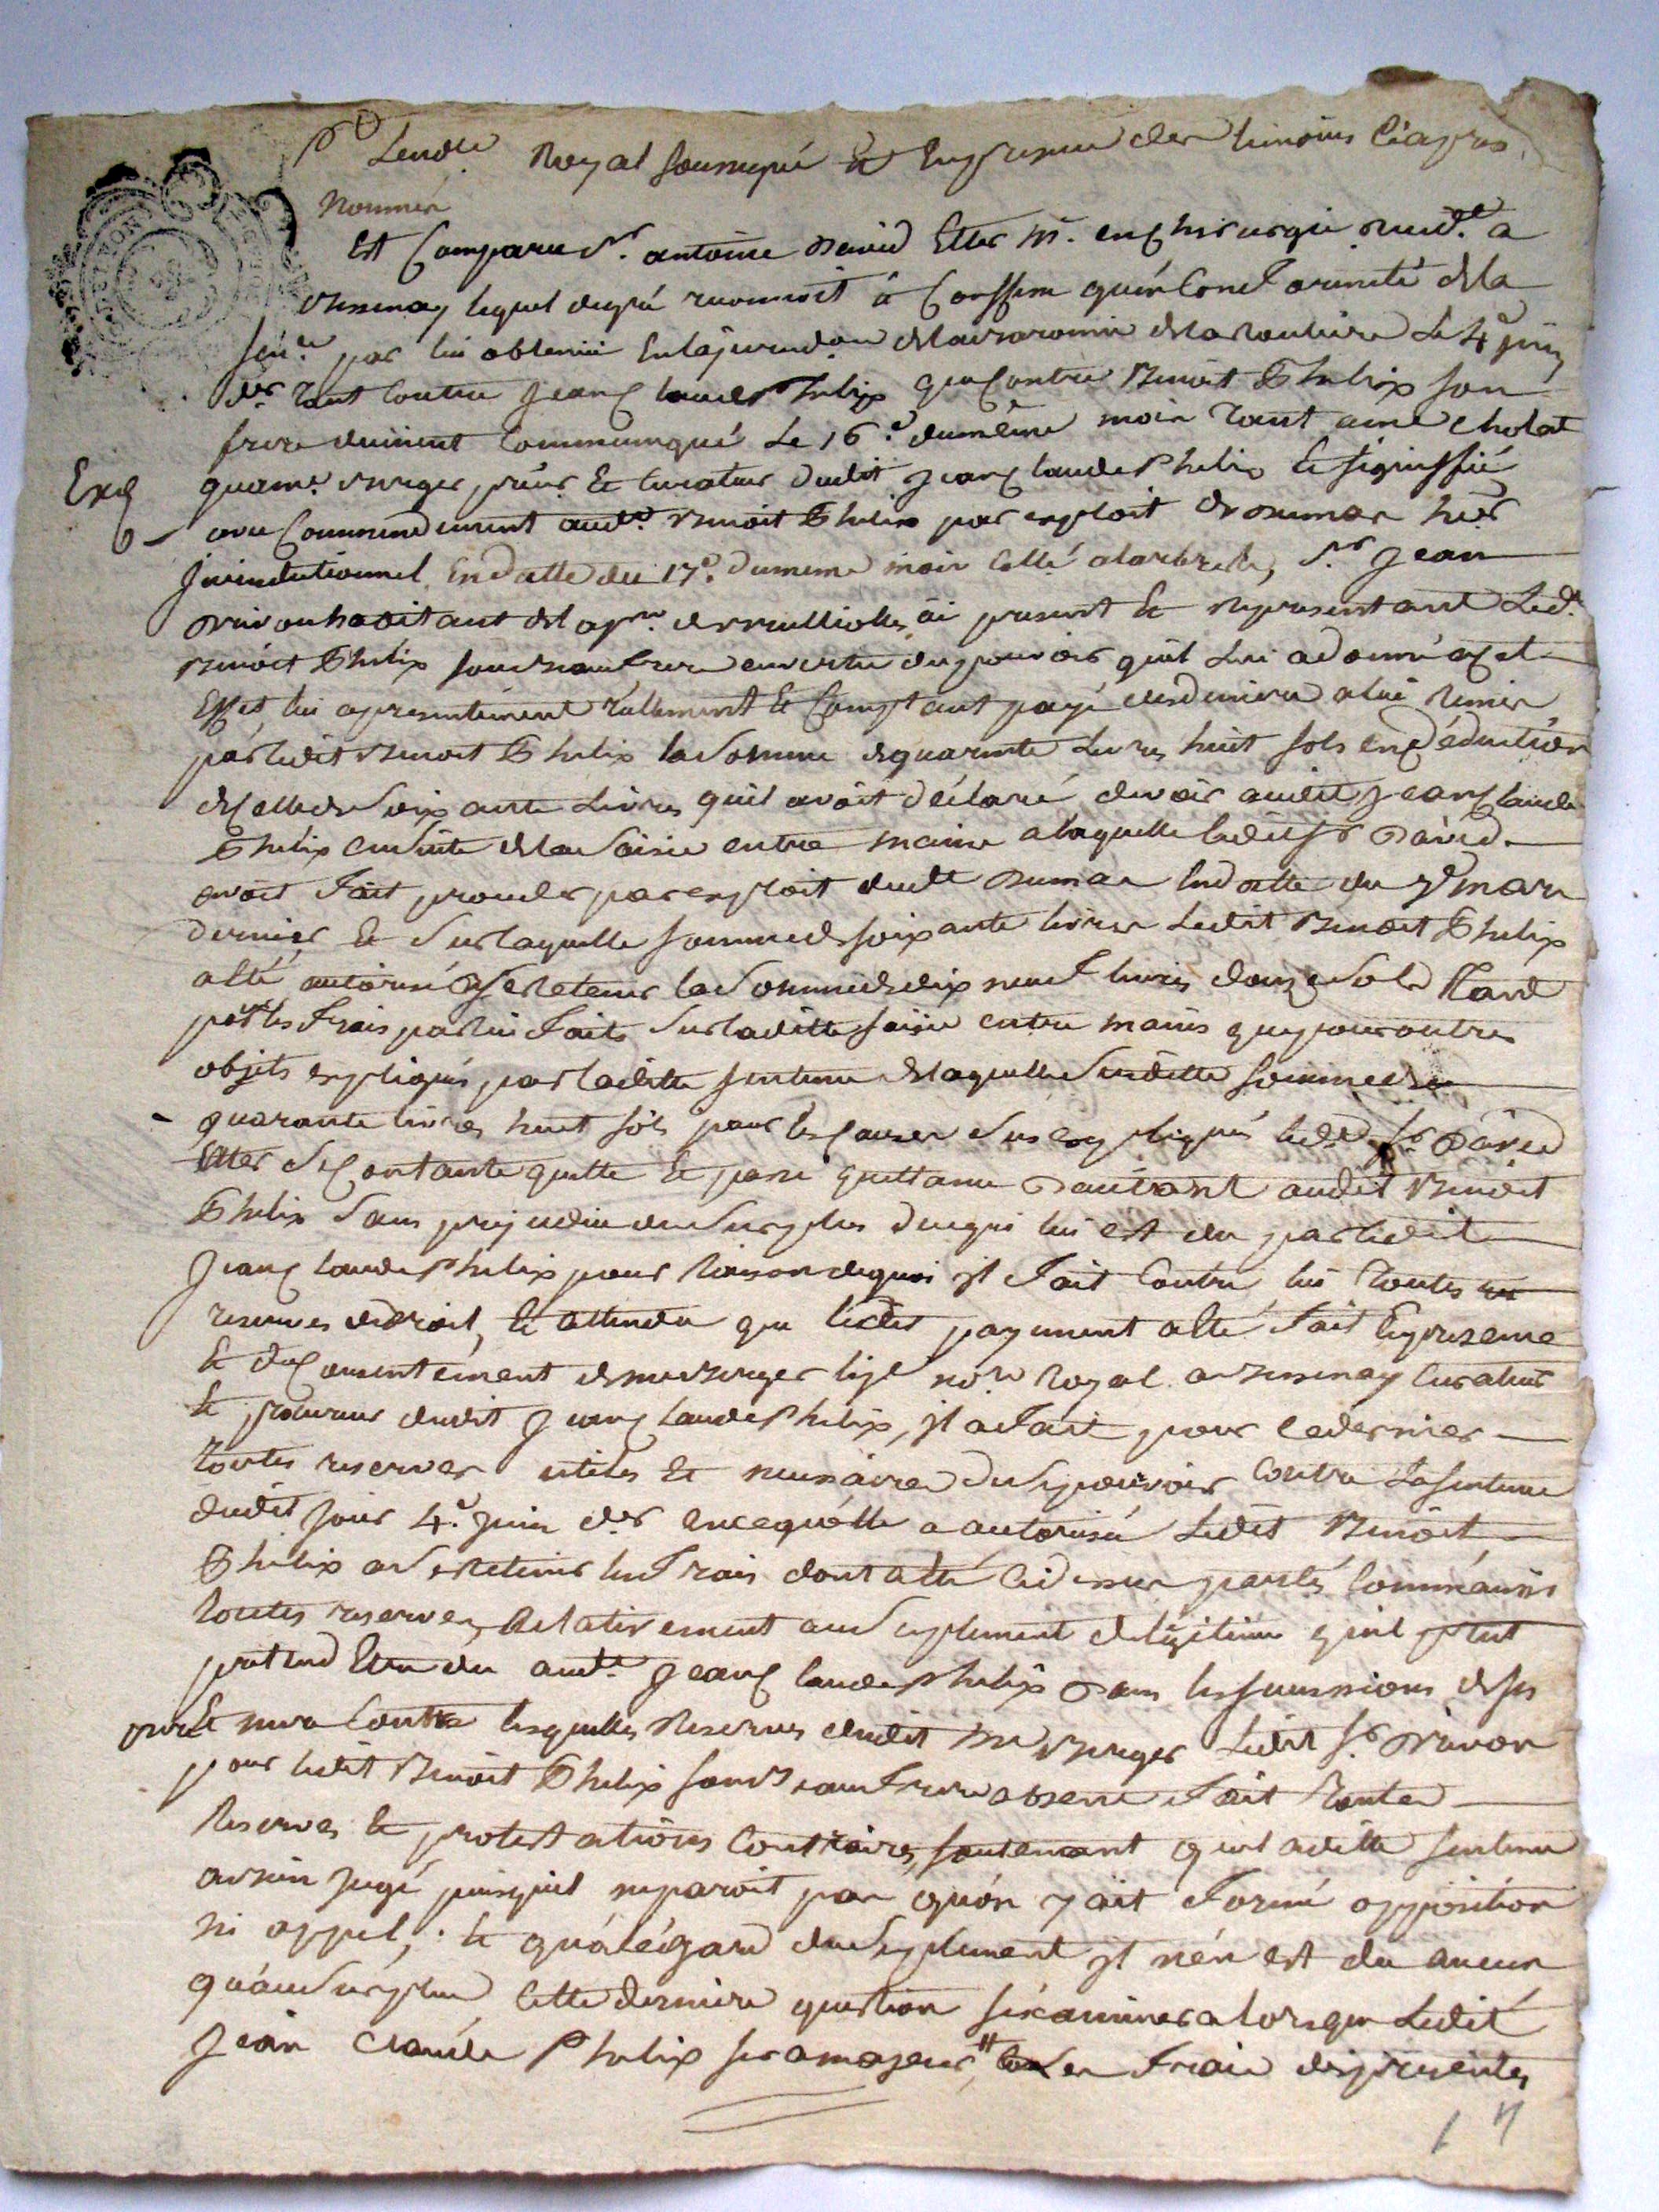 Royal soussigné Et En presence des temoins Ciapres
Nommés
Est Comparu Sr. antoine David Etter m. en Chirurgie resid.t a
Bessenay lequel degré reconnoit & Confesse qu'en Conformité de la
sen.ce par lui obtenüe En la jurisd.on de la Baronnie de la Le 4e juin
der tant Contre Jean Claude Phelix que Contre Benoit Phelix son
frere duëment Communiqué Le 16.e du même mois tant a me cholat
qua me. Berger, & Curateur Dudit Jean Claude Phelix Et signiffié
Exp
avec Commendement aud.t Benoit Phelix par exploit de Dumas huiss
Jurisdictionnel En datte du 17e. du meme mois Collé alarbresle, Sr Jean
habitant de la psse. de ici present Et Representant Led.t
Benoit Phelix son beaufrere en vertu du pouvoir quil Lui a donné a Cet
Effet lui a presentement réellement Et Comptant payé des deniers a lui remis
par ledit Benoit Phelix la Somme de quarante Livres huit sols en déduction
de Celle de Soixante Livres quil avoit déclaré devoir audit Jean Claude
Phelix en Suite de la Saisie entre mains a laquelle ledit Sr David
avoit fait proceder par exploit dudit Dumas En datte du mars
dernier, Et Sur laquelle somme de soixante livres Ledit Benoit Phelix
a Eté autorisé de Se Retenir la Somme de dix neuf livres douze Sols Tant
pour les frais par lui faits Sur laditte saisie entre mains que pour autres
objets expliqués par laditte sentence de laquelle Susditte somme de
quarante livres huit sols pour les Causes Sus Expliqués ledit Sr David
Etter Se Contante quitte Et passe quittance D'autant audit Benoit
Phelix Sans prejudice du Surplus de ce qui lui est du par ledit
Jean Claude Phelix pour raison de quoi il fait Contre lui toutes
reserves de droit, Et attendu que ledit payement a Eté fait En presence
Et du Consentement de me Berger no.re Royal a Bessenay Curateur
Et procureur dudit Jean Claude Phelix, il a fait pour ce dernier
toutes reserves utiles Et necessaires de Se pourvoir Contre La sentence
dudit jour 4.e juin der En ce quelle a autorisé Ledit Benoit
Phelix a Se Retenir les frais dont a Eté Cidessus parlé, Comme aussi
toutes reserves Relativement au Suplement de legitime quil
pretend Etre du aud.t Jean Claude Phelix Dans les successions de ses
pere Et mere Contre lesquelles Reserves dudit me Berger Ledit Sr.
pour ledit Benoit Phelix son beaufrere absent fait Toutes
Reserves Et protestations Contraires, soutenant que laditte sentence
a bien jugé puisquil ne paroit pas quon y ait formé opposition
ni appel, Et qu'a l'égard du Suplement il n'en est du aucun
qu'au Surplus Cette derniere question s'examinera lorsque Ledit
Jean Claude Phelix sera majeur, les frais des presentes
17